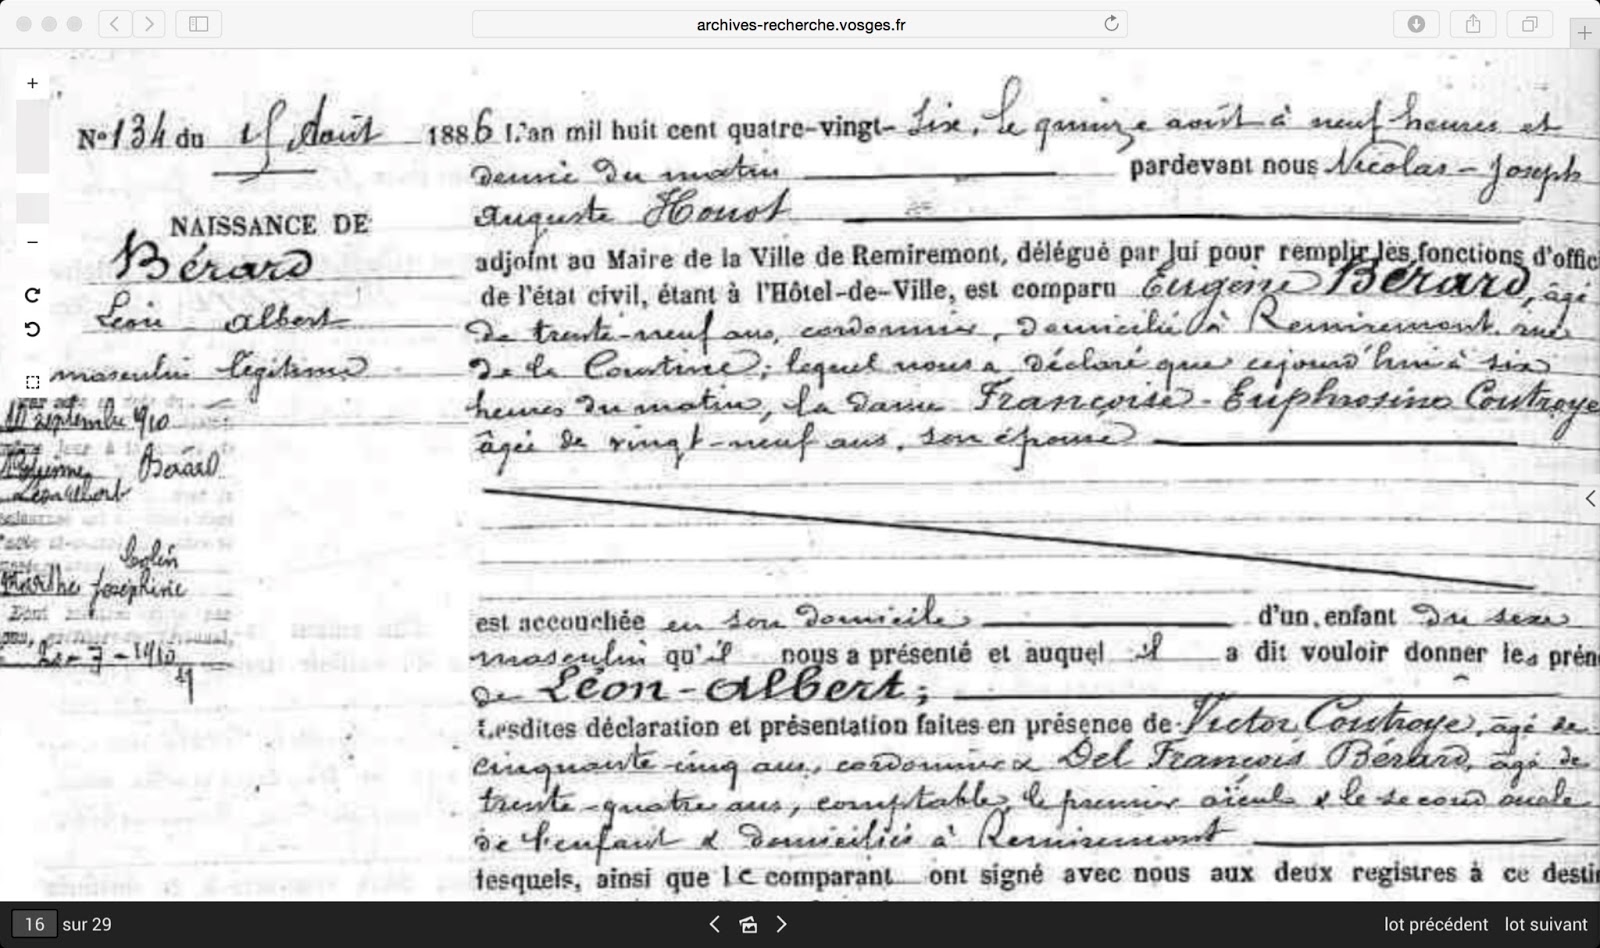 archives-recherche.vosges.fr
N° 134 du 15 Août
NAISSANCE DE
Bérard
Léon Albert
masculin légitime
10 septembre 1910
Bérard
Léon Albert
Colin
Marthe Joséphine
1886 L'an mil huit cent quatre-vingt-six, le quinze août à neuf heures et
demie du matin pardevant nous Nicolas-Joseph
Auguste Honot
adjoint au Maire de la Ville de Remiremont, délégué par lui pour remplir les fonctions d'offici
de l'état civil, étant à l'Hôtel-de-Ville, est comparu Eugène Bérard, âgé
de trente-neuf ans, cordonnier, domicilié à Remiremont, rue
de la Courtine; lequel nous a déclaré que cejourd'hui à six
heures du matin, la dame Françoise-Euphrosine Coutroye
âgée de vingt-neuf ans, son épouse
est accouchée en son domicile d'un enfant du sexe
masculin qu'il nous a présenté et auquel il a dit vouloir donner les prén
de Léon-Albert;
Lesdites déclaration et présentation faites en présence de Victor Coutroye, âgé de
cinquante-cinq ans, cordonnier & Del François Bérard, âgé de
trente-quatre ans, comptable, le premier aïeul & le second oncle
de l'enfant & domiciliés à Remiremont
lesquels, ainsi que le comparant ont signé avec nous aux deux registres à ce destin
16 sur 29
lot précédent lot suivant